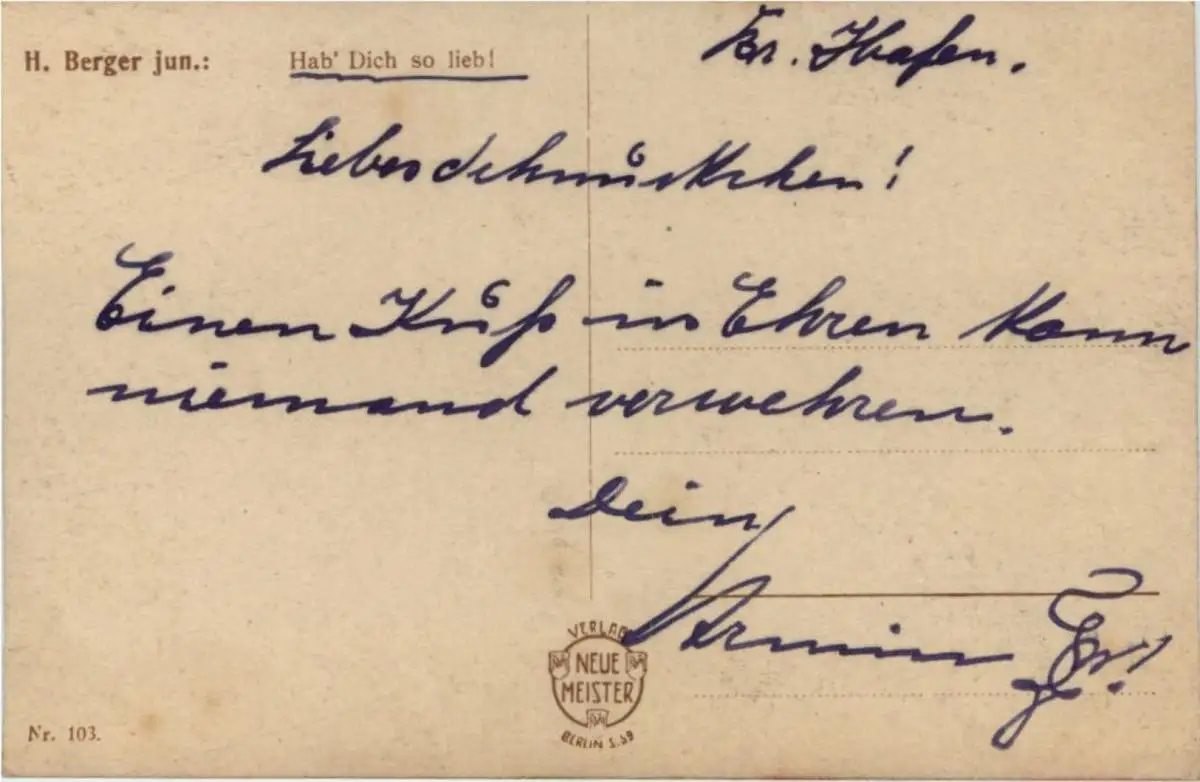 H. Berger jun.: Hab' Dich so lieb!
Br. Hafen.
Liebes Schnuckchen!
Einen Kuß in Ehren kann
niemand verwehren.
Dein
Armin
VERLAG
NEUE
MEISTER
BERLIN S.59
Nr. 103.